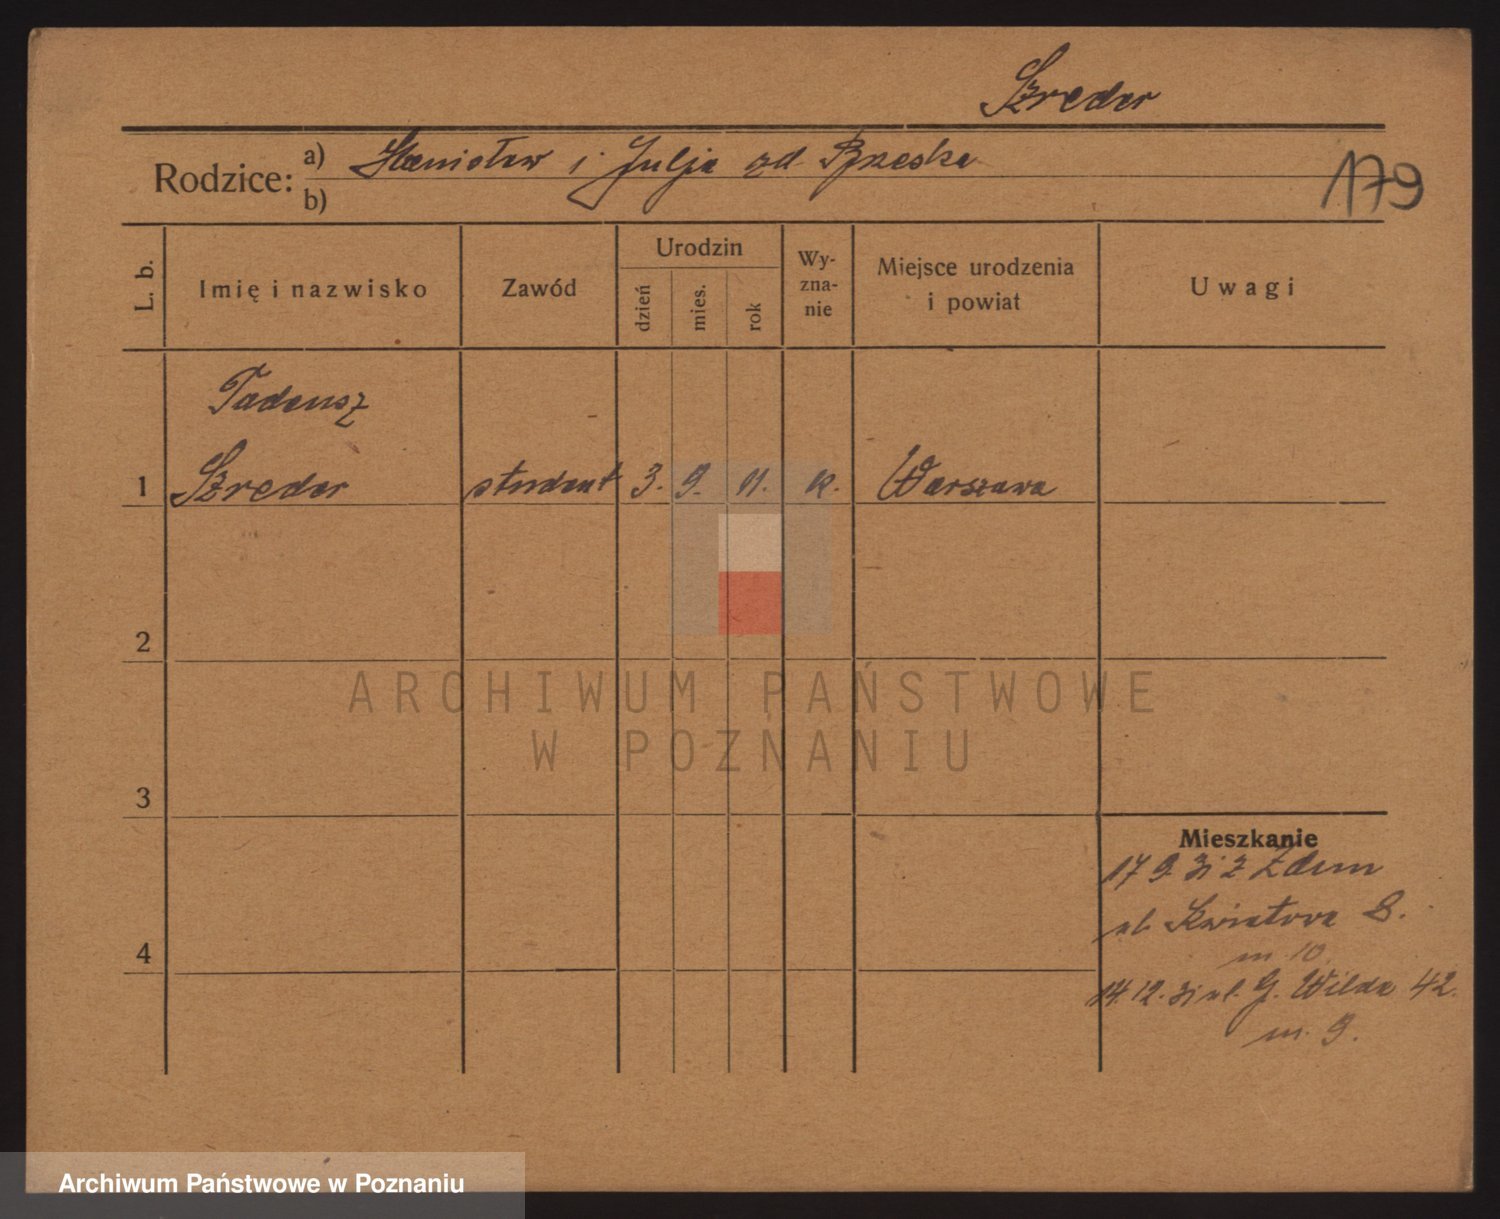 Szreder
Rodzice: a) Stanisław i Julja zd. Brzeska
b)
179
L. b.
Imię i nazwisko
Zawód
Urodzin
dzień
mies.
rok
Wy-
zna-
nie
Miejsce urodzenia
i powiat
Uwagi
Tadeusz
1 Szreder student 3. 9. 11. k. Warszawa
2
ARCHIWUM PAŃSTWOWE
W POZNANIU
3
Mieszkanie
17 9. 31 z
ul. Kwiatowa 8.
m. 10.
4
14. 12. 31 ul. G. Wilda 42.
m. 9.
Archiwum Państwowe w Poznaniu